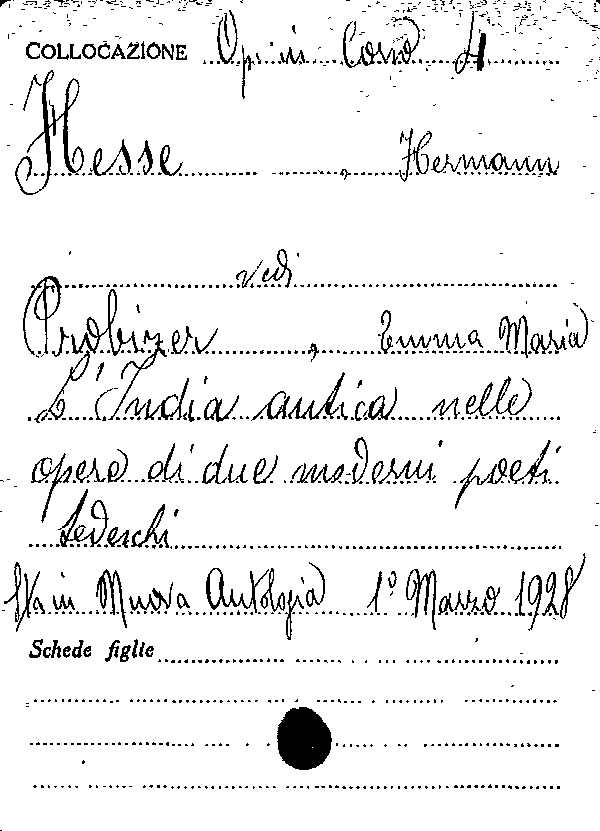 COLLOCAZIONE Op. in Corso 4
Hesse, Hermann
vedi
Probizer, Emma Maria
L'India antica nelle
opere di due moderni poeti
tedeschi
Sta in Nuova Antologia 1º Marzo 1928
Schede figlie